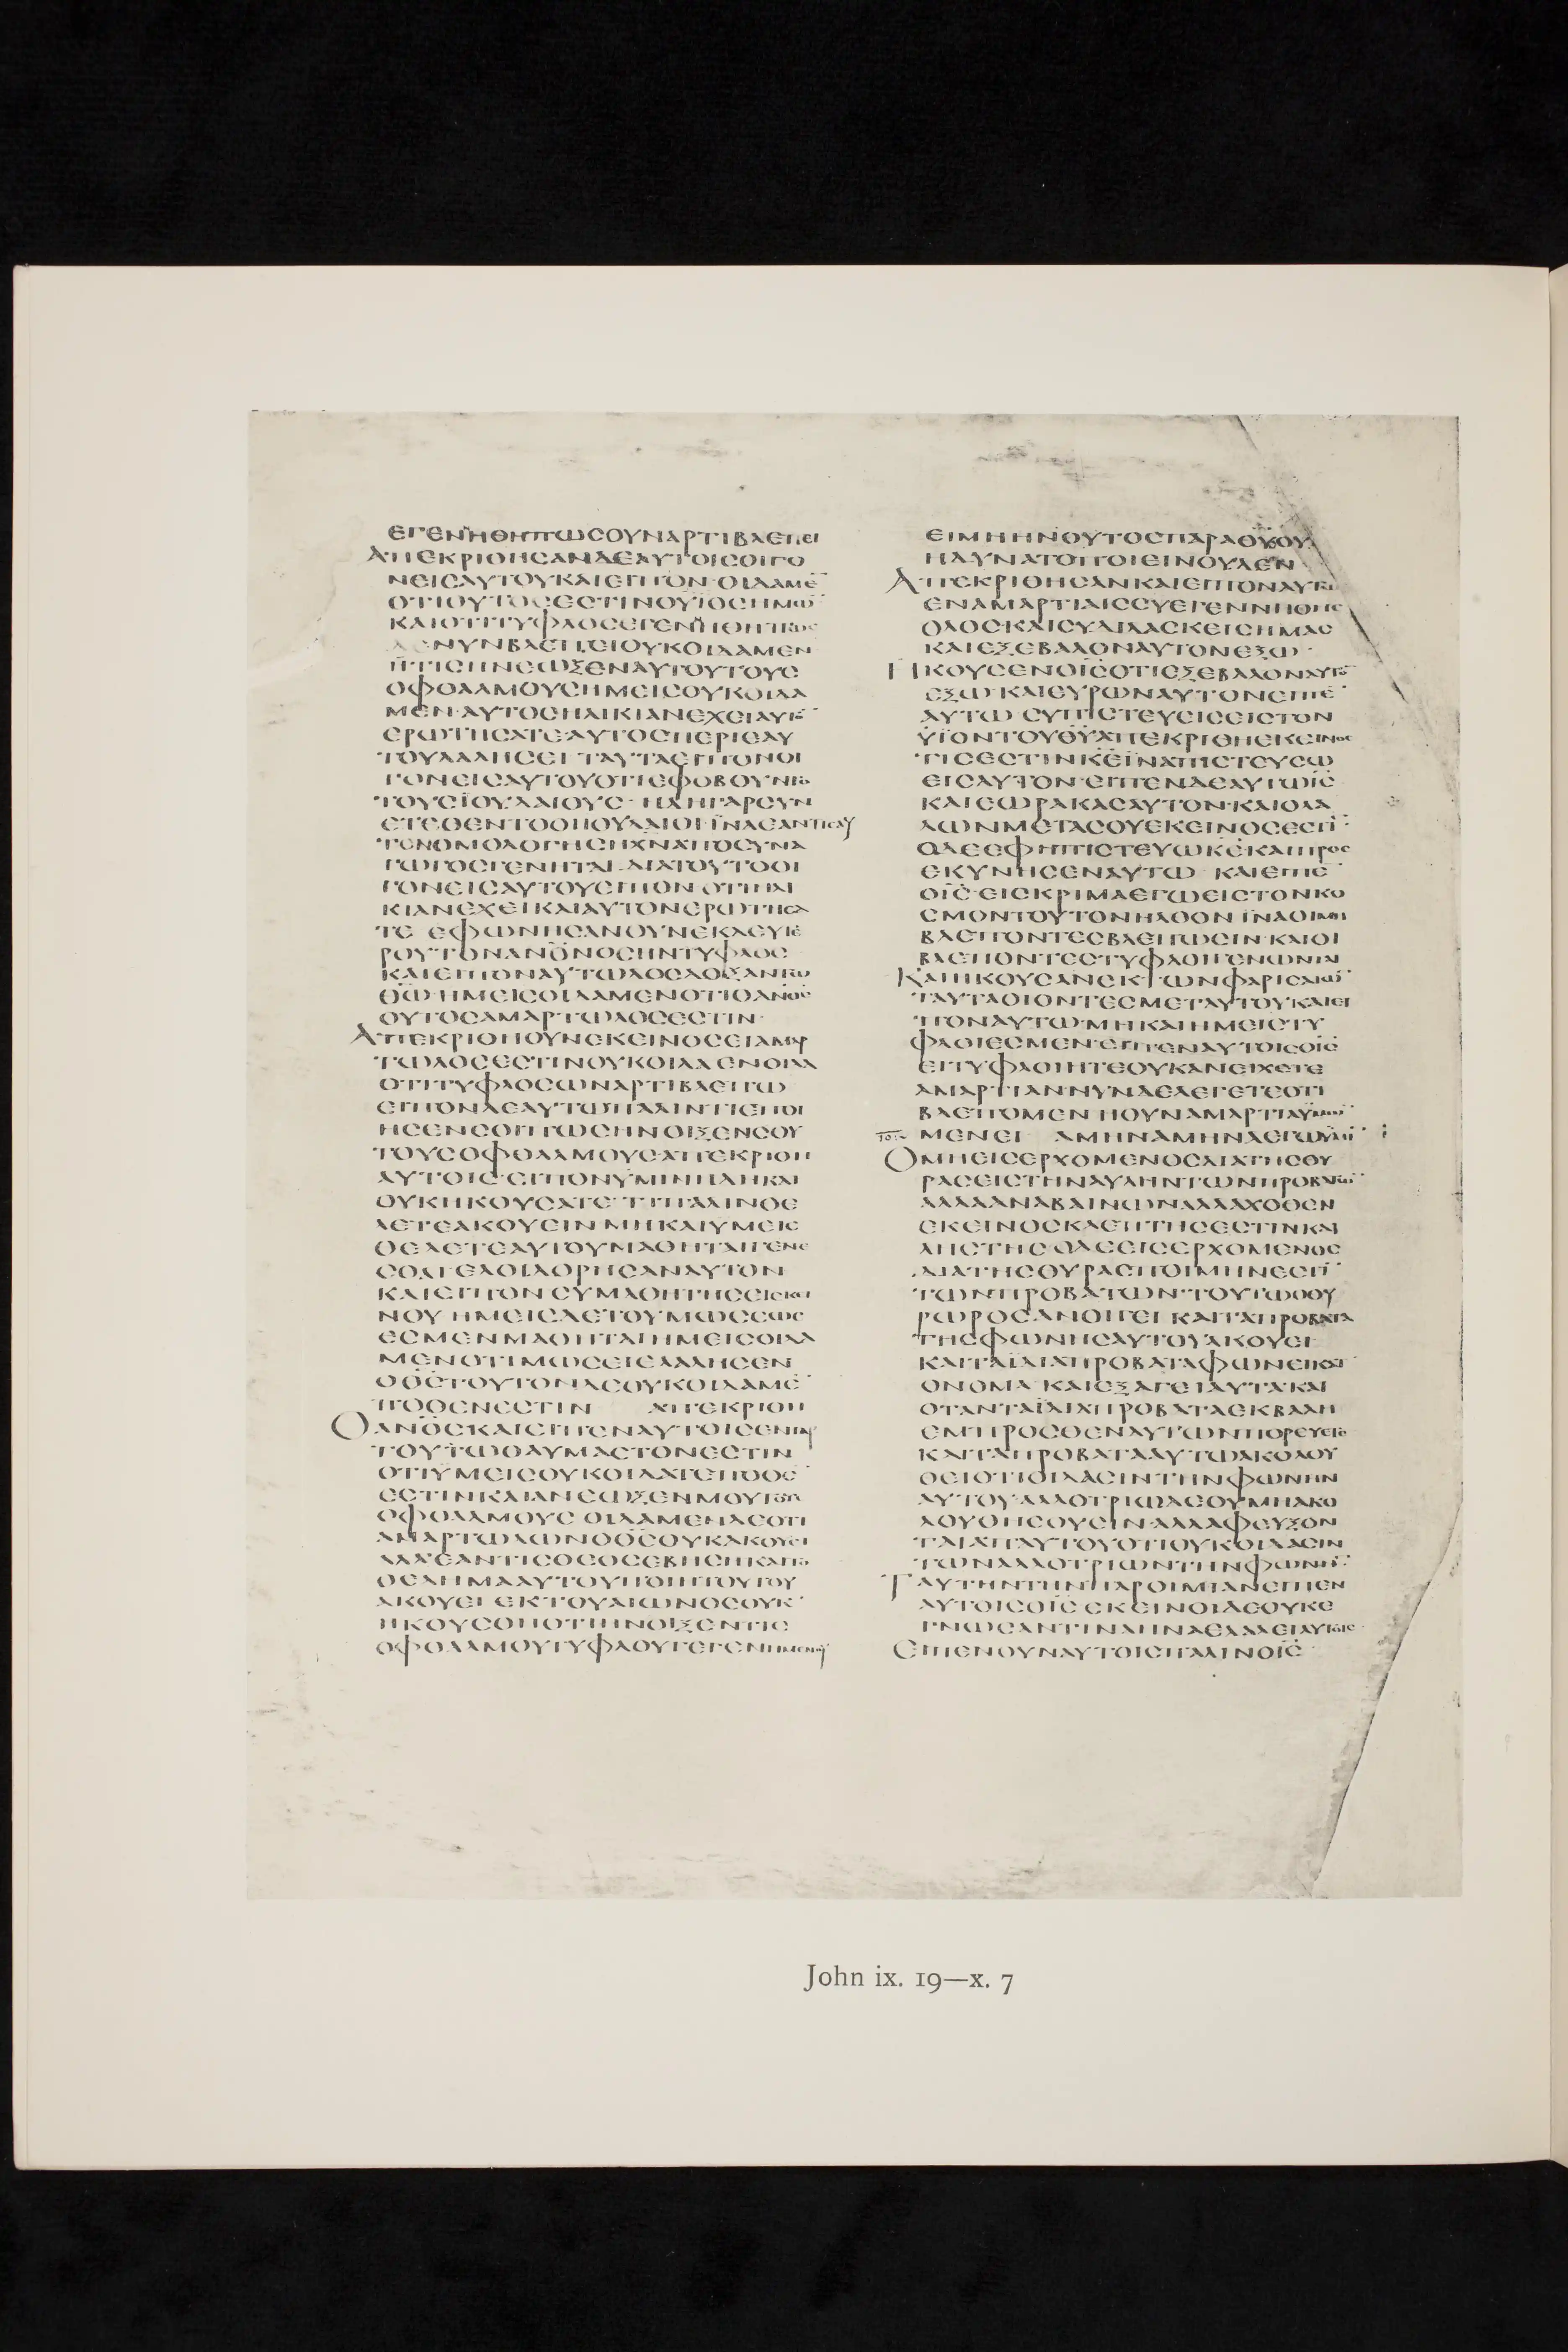 ΕΓΕΝΝΗΘΗΠΩϹΟΥΝΑΡΤΙΒΛΕΠΕΙ
ΑΠΕΚΡΙΘΗϹΑΝΔΕΑΥΤΟΙϹΟΙΓΟ
ΝΕΙϹΑΥΤΟΥΚΑΙΕΙΠΟΝ·ΟΙΔΑΜΕ̅
ΟΤΙΟΥΤΟϹΕϹΤΙΝΟΥΪΟϹΗΜΩ̅
ΚΑΙΟΤΙΤΥΦΛΟϹΕΓΕΝΝΗΘΗΠΩϹ
ΔΕΝΥΝΒΛΕΠΕΙΟΥΚΟΙΔΑΜΕΝ
ΗΤΙϹΗΝΕΩΞΕΝΑΥΤΟΥΤΟΥϹ
ΟΦΘΑΛΜΟΥϹΗΜΕΙϹΟΥΚΟΙΔΑ
ΜΕΝ·ΑΥΤΟϹΗΛΙΚΙΑΝΕΧΕΙΑΥΤΟ̅
ΕΡΩΤΗϹΑΤΕ·ΑΥΤΟϹΠΕΡΙΕΑΥ
ΤΟΥΛΑΛΗϹΕΙ ΤΑΥΤΑΕΙΠΟΝΟΙ
ΓΟΝΕΙϹΑΥΤΟΥΟΤΙΕΦΟΒΟΥΝΤΟ
ΤΟΥϹΪΟΥΔΑΙΟΥϹ· ΗΔΗΓΑΡϹΥΝ
ΕΤΕΘΕΝΤΟΟΙΙΟΥΔΑΙΟΙΪΝΑΕΑΝΤΙϹΑΥ
ΤΟΝΟΜΟΛΟΓΗϹΗΧΝΑΠΟϹΥΝΑ
ΓΩΓΟϹΓΕΝΗΤΑΙ·ΔΙΑΤΟΥΤΟΟΙ
ΓΟΝΕΙϹΑΥΤΟΥΕΙΠΟΝ ΟΤΙΗΛΙ
ΚΙΑΝΕΧΕΙΚΑΙΑΥΤΟΝΕΡΩΤΗϹΑ
ΤΕ ΕΦΩΝΗϹΑΝΟΥΝΕΚΔΕΥΤΕ
ΡΟΥΤΟΝΑΝΟ̅Ν̅ΟϹΗΝΤΥΦΛΟϹ
ΚΑΙΕΙΠΟΝΑΥΤΩΔΟϹΔΟΞΑΝΤΩ
Θ̅Ω̅·ΗΜΕΙϹΟΙΔΑΜΕΝΟΤΙΟΑΝΟ̅Ϲ̅
ΟΥΤΟϹΑΜΑΡΤΩΛΟϹΕϹΤΙΝ·
ΑΠΕΚΡΙΘΗΟΥΝΕΚΕΙΝΟϹΕΙΑΜΑΡ
ΤΩΛΟϹΕϹΤΙΝΟΥΚΟΙΔΑ ΕΝΟΙΔΑ
ΟΤΙΤΥΦΛΟϹΩΝΑΡΤΙΒΛΕΠΩ
ΕΙΠΟΝΔΕΑΥΤΩΠΑΛΙΝΤΙΕΠΟΙ
ΗϹΕΝϹΟΙΠΩϹΗΝΟΙΞΕΝϹΟΥ
ΤΟΥϹΟΦΘΑΛΜΟΥϹ·ΑΠΕΚΡΙΘΗ
ΑΥΤΟΙϹ·ΕΙΠΟΝΥΜΙΝΗΔΗΚΑΙ
ΟΥΚΗΚΟΥϹΑΤΕ ΤΙΠΑΛΙΝΘΕ
ΛΕΤΕΑΚΟΥΕΙΝ ΜΗΚΑΙΥΜΕΙϹ
ΘΕΛΕΤΕΑΥΤΟΥΜΑΘΗΤΑΙΓΕΝΕ
ϹΘΑΙ ΕΛΟΙΔΟΡΗϹΑΝΑΥΤΟΝ
ΚΑΙΕΙΠΟΝ ϹΥΜΑΘΗΤΗϹΕΙΕΚΕΙ
ΝΟΥ ΗΜΕΙϹΔΕΤΟΥΜΩϹΕΩϹ
ΕϹΜΕΝΜΑΘΗΤΑΙ ΗΜΕΙϹΟΙΔΑ
ΜΕΝΟΤΙΜΩϹΕΙΕΛΑΛΗϹΕΝ
ΟΘ̅Ϲ̅ΤΟΥΤΟΝΔΕΟΥΚΟΙΔΑΜΕ̅
ΠΟΘΕΝΕϹΤΙΝ ΑΠΕΚΡΙΘΗ
ΟΑΝΟ̅Ϲ̅ΚΑΙΕΙΠΕΝΑΥΤΟΙϹΕΝΓΑΡ
ΤΟΥΤΩΘΑΥΜΑϹΤΟΝΕϹΤΙΝ
ΟΤΙΫΜΕΙϹΟΥΚΟΙΔΑΤΕΠΟΘΕ̅
ΕϹΤΙΝΚΑΙΑΝΕΩΞΕΝΜΟΥΤΟΥϹ
ΟΦΘΑΛΜΟΥϹ ΟΙΔΑΜΕΝΔΕΟΤΙ
ΑΜΑΡΤΩΛΩΝΟΘ̅Ϲ̅ΟΥΚΑΚΟΥΕΙ
ΑΛΛΕΑΝΤΙϹΘΕΟϹΕΒΗϹΗΚΑΙΤΟ
ΘΕΛΗΜΑΑΥΤΟΥΠΟΙΗΤΟΥΤΟΥ
ΑΚΟΥΕΙ ΕΚΤΟΥΑΙΩΝΟϹΟΥΚ
ΗΚΟΥϹΘΗΟΤΙΗΝΟΙΞΕΝΤΙϹ
ΟΦΘΑΛΜΟΥϹΤΥΦΛΟΥΓΕΓΕΝΗΜΕΝΟΥ
ΕΙΜΗΗΝΟΥΤΟϹΠΑΡΑΘ̅Υ̅ΟΥ
ΗΔΥΝΑΤΟΠΟΙΕΙΝΟΥΔΕΝ
ΑΠΕΚΡΙΘΗϹΑΝΚΑΙΕΙΠΟΝΑΥΤΩ
ΕΝΑΜΑΡΤΙΑΙϹϹΥΕΓΕΝΝΗΘΗϹ
ΟΛΟϹ·ΚΑΙϹΥΔΙΔΑϹΚΕΙϹΗΜΑϹ
ΚΑΙΕΞΕΒΑΛΟΝΑΥΤΟΝΕΞΩ·
ΗΚΟΥϹΕΝΟΙ̅Ϲ̅ΟΤΙΕΞΕΒΑΛΟΝΑΥΤΟ̅
ΕΞΩ·ΚΑΙΕΥΡΩΝΑΥΤΟΝΕΙΠΕ̅
ΑΥΤΩ ϹΥΠΙϹΤΕΥΕΙϹΕΙϹΤΟΝ
ΫΪΟΝΤΟΥΘ̅Υ̅ΑΠΕΚΡΙΘΗΕΚΕΙΝΟϹ
ΤΙϹΕϹΤΙΝΚ̅Ε̅ΪΝΑΠΙϹΤΕΥϹΩ
ΕΙϹΑΥΤΟΝ·ΕΙΠΕΝΔΕΑΥΤΩΙ̅Ϲ̅
ΚΑΙΕΩΡΑΚΑϹΑΥΤΟΝ·ΚΑΙΟΛΑ
ΛΩΝΜΕΤΑϹΟΥΕΚΕΙΝΟϹΕϹΤΙ̅
ΟΔΕΕΦΗΠΙϹΤΕΥΩΚ̅Ε̅·ΚΑΙΠΡΟϹ
ΕΚΥΝΗϹΕΝΑΥΤΩ ΚΑΙΕΙΠΕ
ΟΙ̅Ϲ̅·ΕΙϹΚΡΙΜΑΕΓΩΕΙϹΤΟΝΚΟ
ϹΜΟΝΤΟΥΤΟΝΗΛΘΟΝ ΪΝΑΟΙΜΗ
ΒΛΕΠΟΝΤΕϹΒΛΕΠΩϹΙΝ·ΚΑΙΟΙ
ΒΛΕΠΟΝΤΕϹΤΥΦΛΟΙΓΕΝΩΝΤΑΙ
ΚΑΙΗΚΟΥϹΑΝΕΚΤΩΝΦΑΡΙϹΑΙΩ̅
ΤΑΥΤΑΟΙΟΝΤΕϹΜΕΤΑΥΤΟΥ·ΚΑΙΕΙ
ΠΟΝΑΥΤΩ·ΜΗΚΑΙΗΜΕΙϹΤΥ
ΦΛΟΙΕϹΜΕΝ·ΕΙΠΕΝΑΥΤΟΙϹΟΙ̅Ϲ̅
ΕΙΤΥΦΛΟΙΗΤΕΟΥΚΑΝΕΙΧΕΤΕ
ΑΜΑΡΤΙΑΝ·ΝΥΝΔΕΛΕΓΕΤΕΟΤΙ
ΒΛΕΠΟΜΕΝ ΗΟΥΝΑΜΑΡΤΙΑΫΜΩ̅
ΜΕΝΕΙ ΑΜΗΝΑΜΗΝΛΕΓΩΥΜΙ̅
ΟΜΗΕΙϹΕΡΧΟΜΕΝΟϹΔΙΑΤΗϹΘΥ
ΡΑϹΕΙϹΤΗΝΑΥΛΗΝΤΩΝΠΡΟΒΑΤΩ̅
ΑΛΛΑΑΝΑΒΑΙΝΩΝΑΛΛΑΧΟΘΕΝ
ΕΚΕΙΝΟϹΚΛΕΠΤΗϹΕϹΤΙΝΚΑΙ
ΛΗϹΤΗϹ ΟΔΕΕΙϹΕΡΧΟΜΕΝΟϹ
ΔΙΑΤΗϹΘΥΡΑϹΠΟΙΜΗΝΕϹΤΙ̅
ΤΩΝΠΡΟΒΑΤΩΝ·ΤΟΥΤΩΟΘΥ
ΡΩΡΟϹΑΝΟΙΓΕΙ ΚΑΙΤΑΠΡΟΒΑΤΑ
ΤΗϹΦΩΝΗϹΑΥΤΟΥΑΚΟΥΕΙ
ΚΑΙΤΑΪΔΙΑΠΡΟΒΑΤΑΦΩΝΕΙΚΑΤ
ΟΝΟΜΑ ΚΑΙΕΞΑΓΕΙΑΥΤΑ·ΚΑΙ
ΟΤΑΝΤΑΪΔΙΑΠΡΟΒΑΤΑΕΚΒΑΛΗ
ΕΜΠΡΟϹΘΕΝΑΥΤΩΝΠΟΡΕΥΕΤΑΙ
ΚΑΙΤΑΠΡΟΒΑΤΑΑΥΤΩΑΚΟΛΟΥ
ΘΕΙΟΤΙΟΙΔΑϹΙΝΤΗΝΦΩΝΗΝ
ΑΥΤΟΥ·ΑΛΛΟΤΡΙΩΔΕΟΥΜΗΑΚΟ
ΛΟΥΘΗϹΟΥϹΙΝ·ΑΛΛΑΦΕΥΞΟΝ
ΤΑΙΑΠΑΥΤΟΥΟΤΙΟΥΚΟΙΔΑϹΙΝ
ΤΩΝΑΛΛΟΤΡΙΩΝΤΗΝΦΩΝΗ̅
ΤΑΥΤΗΝΤΗΝΠΑΡΟΙΜΙΑΝΕΙΠΕΝ
ΑΥΤΟΙϹΟΙ̅Ϲ̅ ΕΚΕΙΝΟΙΔΕΟΥΚΕ
ΓΝΩϹΑΝΤΙΝΑΗΝΑΕΛΑΛΕΙΑΥΤΟΙϹ
ΕΙΠΕΝΟΥΝΑΥΤΟΙϹΠΑΛΙΝΟΙ̅Ϲ̅
John ix. 19—x. 7